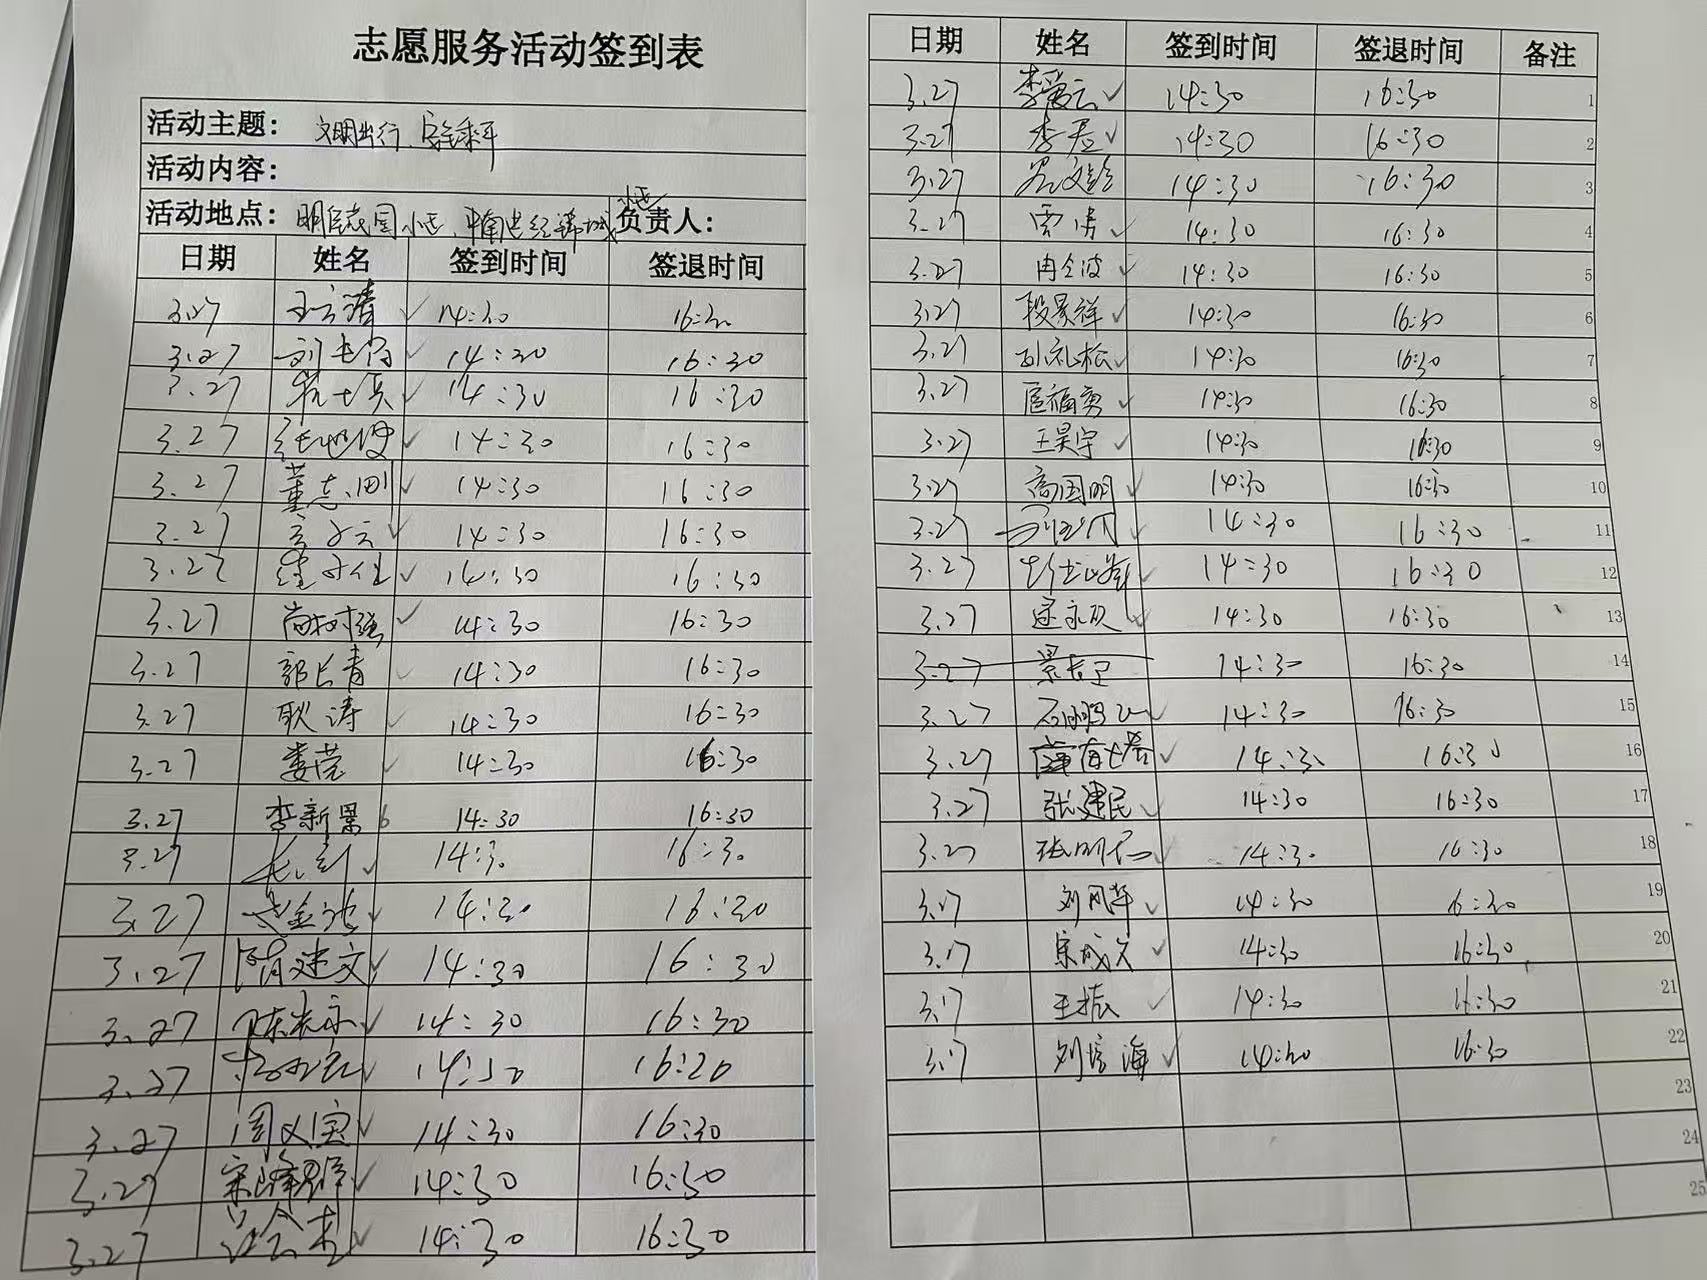 志愿服务活动签到表
活动主题： 文明出行、安全乘车
活动内容：
活动地点： 明 园小区、中南世纪锦城小区 负责人：
日期 姓名 签到时间 签退时间
3.27 14:30 16:30
3.27 刘 14:30 16:30
3.27 14:30 16:30
3.27 14:30 16:30
3.27 董志刚 14:30 16:30
3.27 14:30 16:30
3.27 14:30 16:30
3.27 尚树强 14:30 16:30
3.27 郭长青 14:30 16:30
3.27 耿涛 14:30 16:30
3.27 娄莹 14:30 16:30
3.27 李新景 14:30 16:30
3.27 14:30 16:30
3.27 14:30 16:30
3.27 隋建文 14:30 16:30
3.27 陈 永 14:30 16:30
3.27 14:30 16:20
3.27 周义宝 14:30 16:30
3.27 宋 14:30 16:30
3.27 14:30 16:30
日期 姓名 签到时间 签退时间 备注
3.27 李爱云 14:30 16:30 1
3.27 李君 14:30 16:30 2
3.27 14:30 16:30 3
3.27 雷涛 14:30 16:30 4
3.27 冉令波 14:30 16:30 5
3.27 段景祥 14:30 16:30 6
3.27 孙礼松 14:30 16:30 7
3.27 扈福勇 14:30 16:30 8
3.27 王昊宇 14:30 16:30 9
3.27 高国明 14:30 16:30 10
3.27 14:30 16:30 11
3.27 14:30 16:30 12
3.27 永 14:30 16:30 13
3.27 景长卫 14:30 16:30 14
3.27 石 14:30 16:30 15
3.27 14:30 16:30 16
3.27 张建民 14:30 16:30 17
3.27 张明 14:30 16:30 18
3.17 刘风华 14:30 16:30 19
3.17 宋成久 14:30 16:30 20
3.17 王振 14:30 16:30 21
3.17 刘培海 14:30 16:30 22
23
24
25